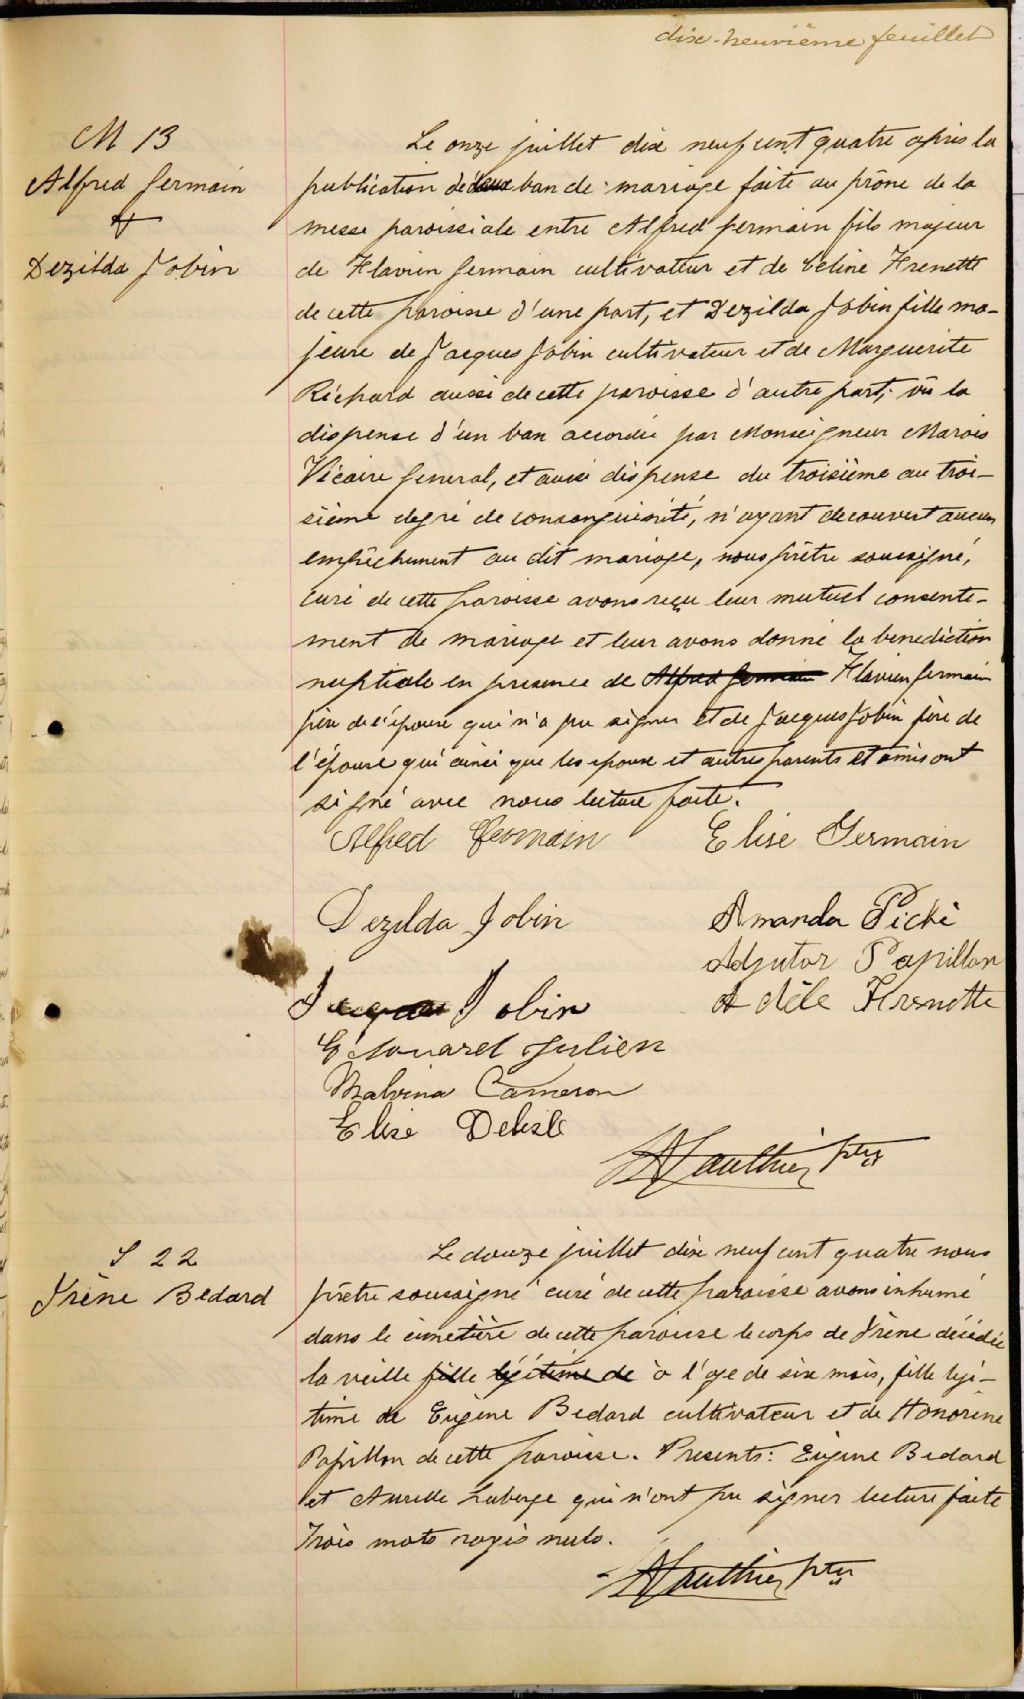 dix-neuvième feuillet
M 13
Alfred Germain
&
Dezilda Jobin
Le onze juillet dix neuf cent quatre après la
publication de deux ban de mariage faite au prône de la
messe paroissiale entre Alfred Germain fils majeur
de Flavien Germain cultivateur et de Celine Frenette
de cette paroisse d'une part, et Dezilda Jobin fille ma-
jeure de Jacques Jobin cultivateur et de Marguerite
Richard aussi de cette paroisse d'autre part; vû la
dispense d'un ban accordée par Monseigneur Marois
Vicaire General, et aussi dispense du troisième au troi-
sième degré de consanguinité, n'ayant decouvert aucun
empêchement au dit mariage, nous prêtre soussigné,
curé de cette paroisse avons reçu leur mutuel consente-
ment de mariage et leur avons donné la benediction
nuptiale en presence de Alfred Germain Flavien Germain
père de l'époux qui n'a pu signer et de Jacques Jobin père de
l'épouse qui ainsi que les epoux et autres parents et amis ont
signé avec nous lecture faite.
Alfred Germain Elise Germain
Dezilda Jobin Amanda Piché
Adjutor Papillon
Jacques Jobin Adèle Frenette
Edouard Julien
Malvina Cameron
Elise Delisle
Gauthier ptre
S 22
Irène Bedard
Le douze juillet dix neuf cent quatre nous
prêtre soussigné curé de cette paroisse avons inhumé
dans le cimetière de cette paroisse le corps de Irène décédée
la veille fille légitime de à l'age de six mois, fille legi-
time de Eugène Bedard cultivateur et de Honorine
Papillon de cette paroisse. Presents: Eugene Bedard
et Aurelle Laberge qui n'ont pu signer lecture faite
Trois mots rayés nuls.
Gauthier ptre